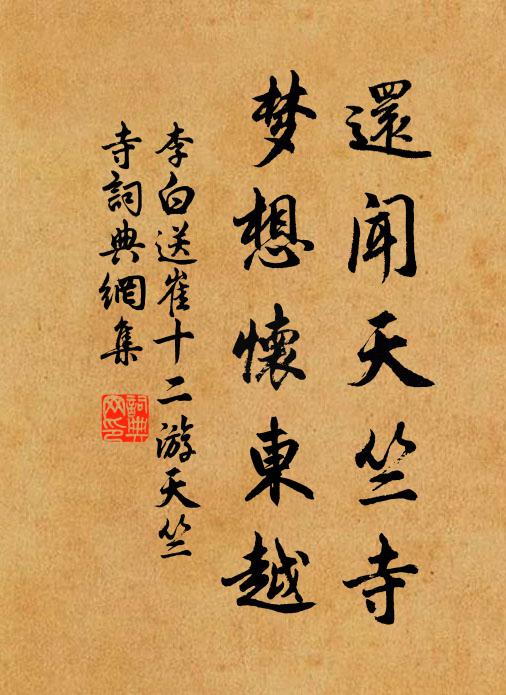 還聞天竺寺
梦想懷東越
李白送崔十二游天竺
寺詞典網集
詞典网印